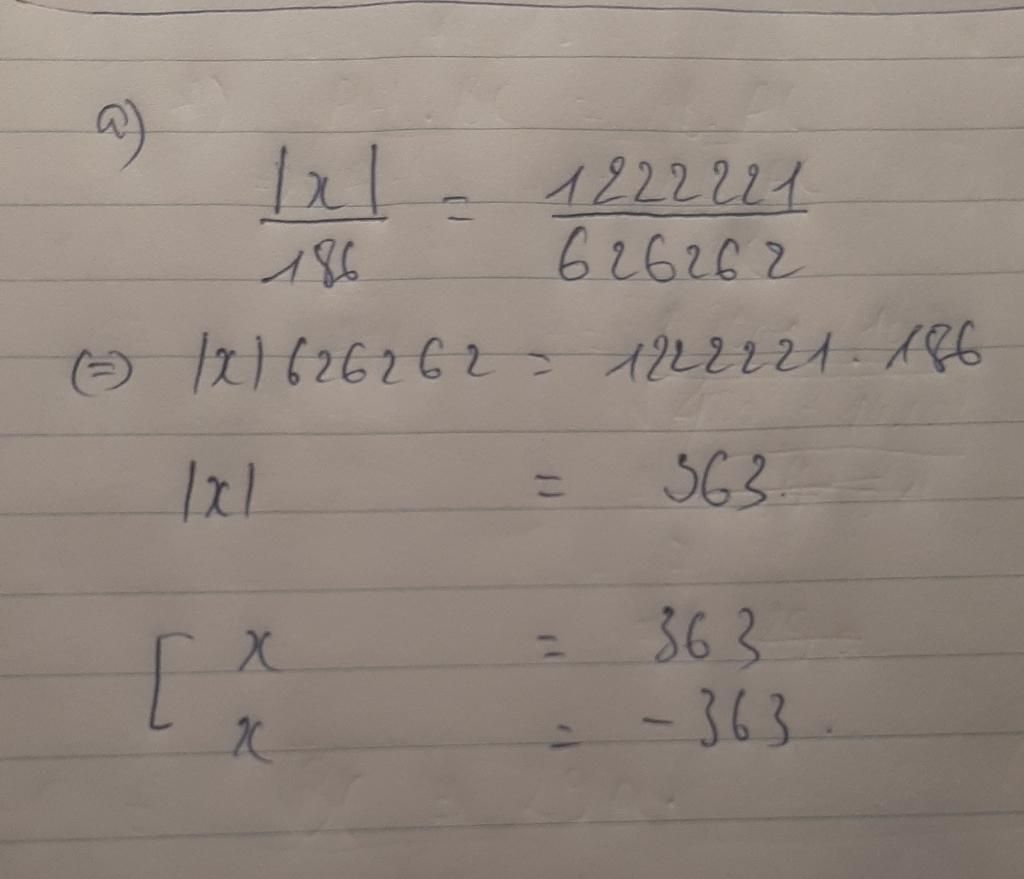 a)
|x| / 186 = 1222221 / 626262
(=) |x| 626262 = 1222221 . 186
|x| = 363.
[ x = 363
x = -363.